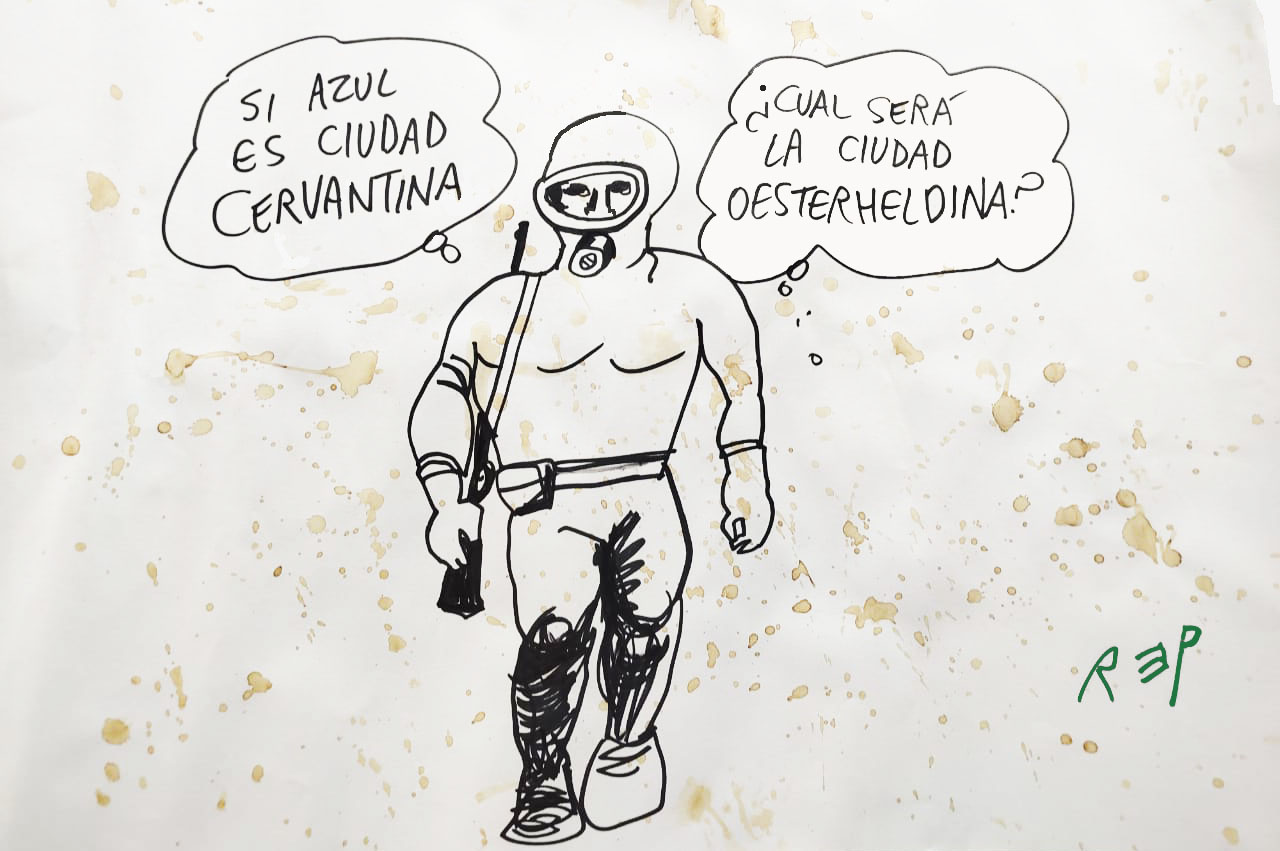 SI AZUL
ES CIUDAD
CERVANTINA
¿CUAL SERÁ
LA CIUDAD
OESTERHELDINA?
REP